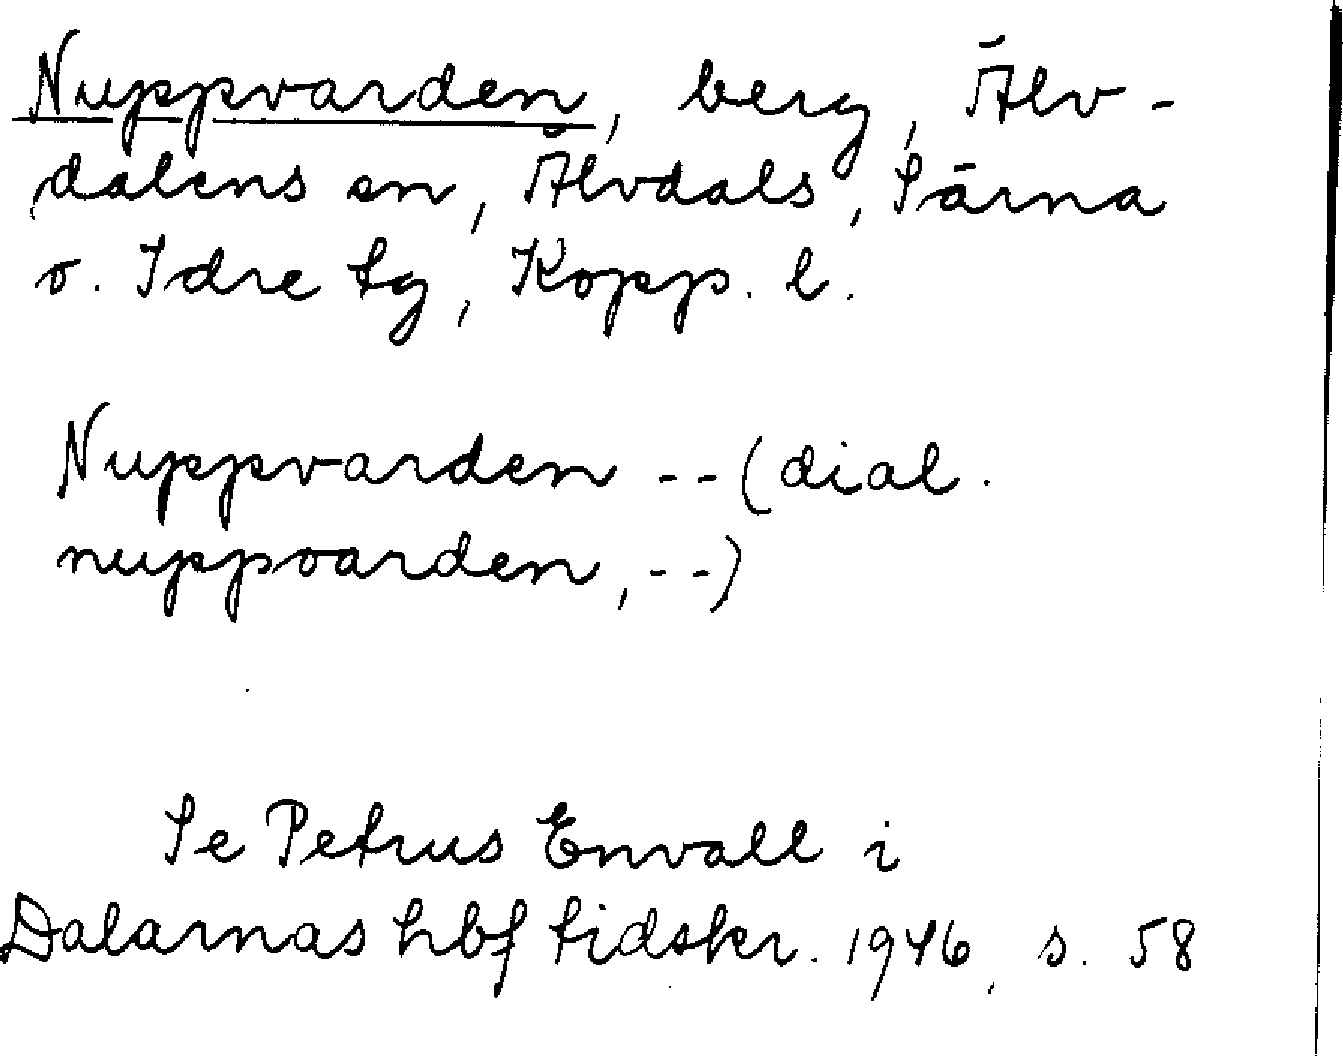 Nuppvarden, berg, Älv-
dalens sn, Älvdals, Särna
o. Idre tg, Kopp. l.
Nuppvarden -- (dial.
nuppoarden, --)
Se Petrus Envall i
Dalarnas hbf tidskr. 1946, s. 58